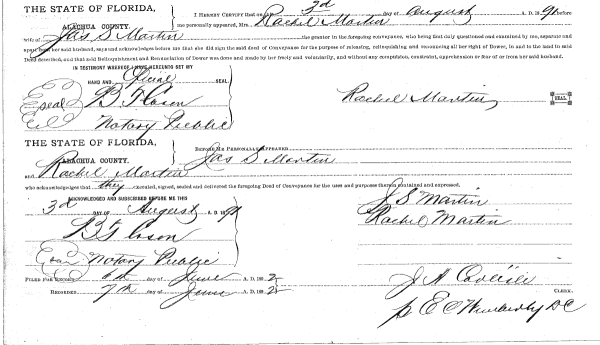 THE STATE OF FLORIDA,
ALACHUA COUNTY.
I HEREBY CERTIFY that on 3d day of August 91 before
me personally appeared, Mrs. Rachel Martin
wife of Jas S Martin the grantor in the foregoing conveyance, who being first duly questioned and examined by me, separate and
apart from her said husband, says and acknowledges before me that she did sign the said deed of Conveyance for the purpose of releasing, relinquishing and renouncing all her right of Dower, in and to the land in said
Deed described, and that said Relinquishment and Renunciation of Dower was done and made by her freely and voluntarily, and without any compulsion, constraint, apprehension or fear of or from her said husband.
IN TESTIMONY WHEREOF, I HAVE HEREUNTO SET MY
HAND AND Official SEAL.
seal B F Cason
Notary Public
Rachel Martin SEAL
THE STATE OF FLORIDA,
ALACHUA COUNTY.
BEFORE ME PERSONALLY APPEARED Jas S Martin
and Rachel Martin
who acknowledges that they executed, signed, sealed and delivered the foregoing Deed of Conveyance for the uses and purposes therein contained and expressed.
ACKNOWLEDGED AND SUBSCRIBED BEFORE ME THIS
3d DAY OF August A. D. 189
J S Martin
Rachel Martin
B F Cason
Notary Public
FILED FOR RECORD 6th day of June A. D. 1892
RECORDED 7th day of June A. D. 1892
J A Carlisle CLERK.
p E C Wimberly D C